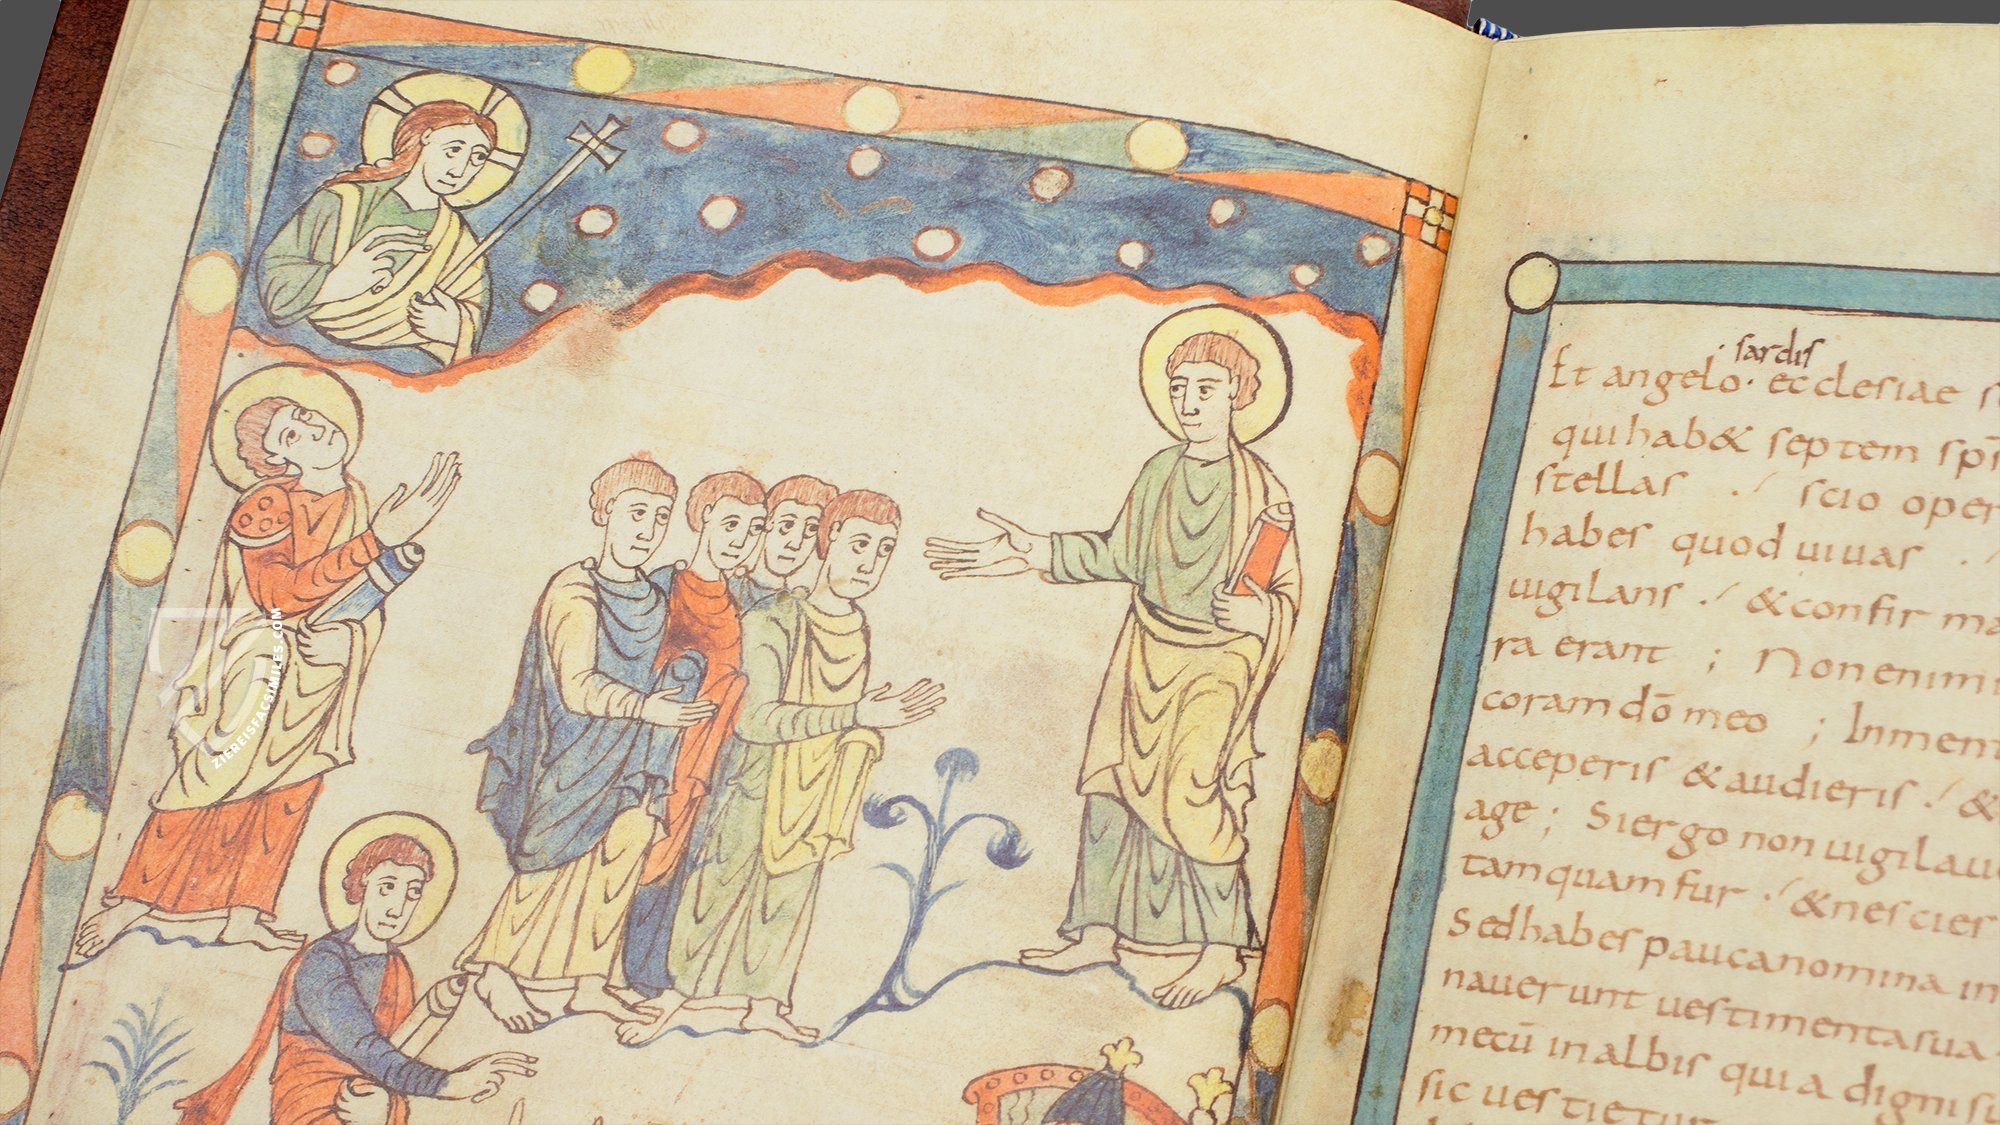 ZIEREISFACSIMILES.COM
· sardis
Et angelo · ecclesiae
qui hab& septem sp̄s
stellas . / scio oper
habes quod uiuas . /
uigilans . / & confirma
ra erant ; Non enim i
coram dō meo ; In ment
acceperis & audieris . / &
age ; Si ergo non uigilaue
tamquam fur . / & nescies
Sed habes pauca nomina in
nauerunt uestimenta sua .
mecū in albis quia digni su
sic uestietur